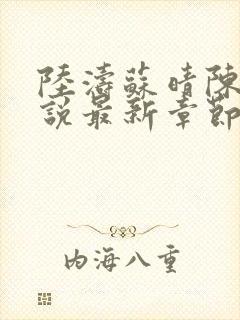 陸濤蘇晴陳
說最新章節
内海八重